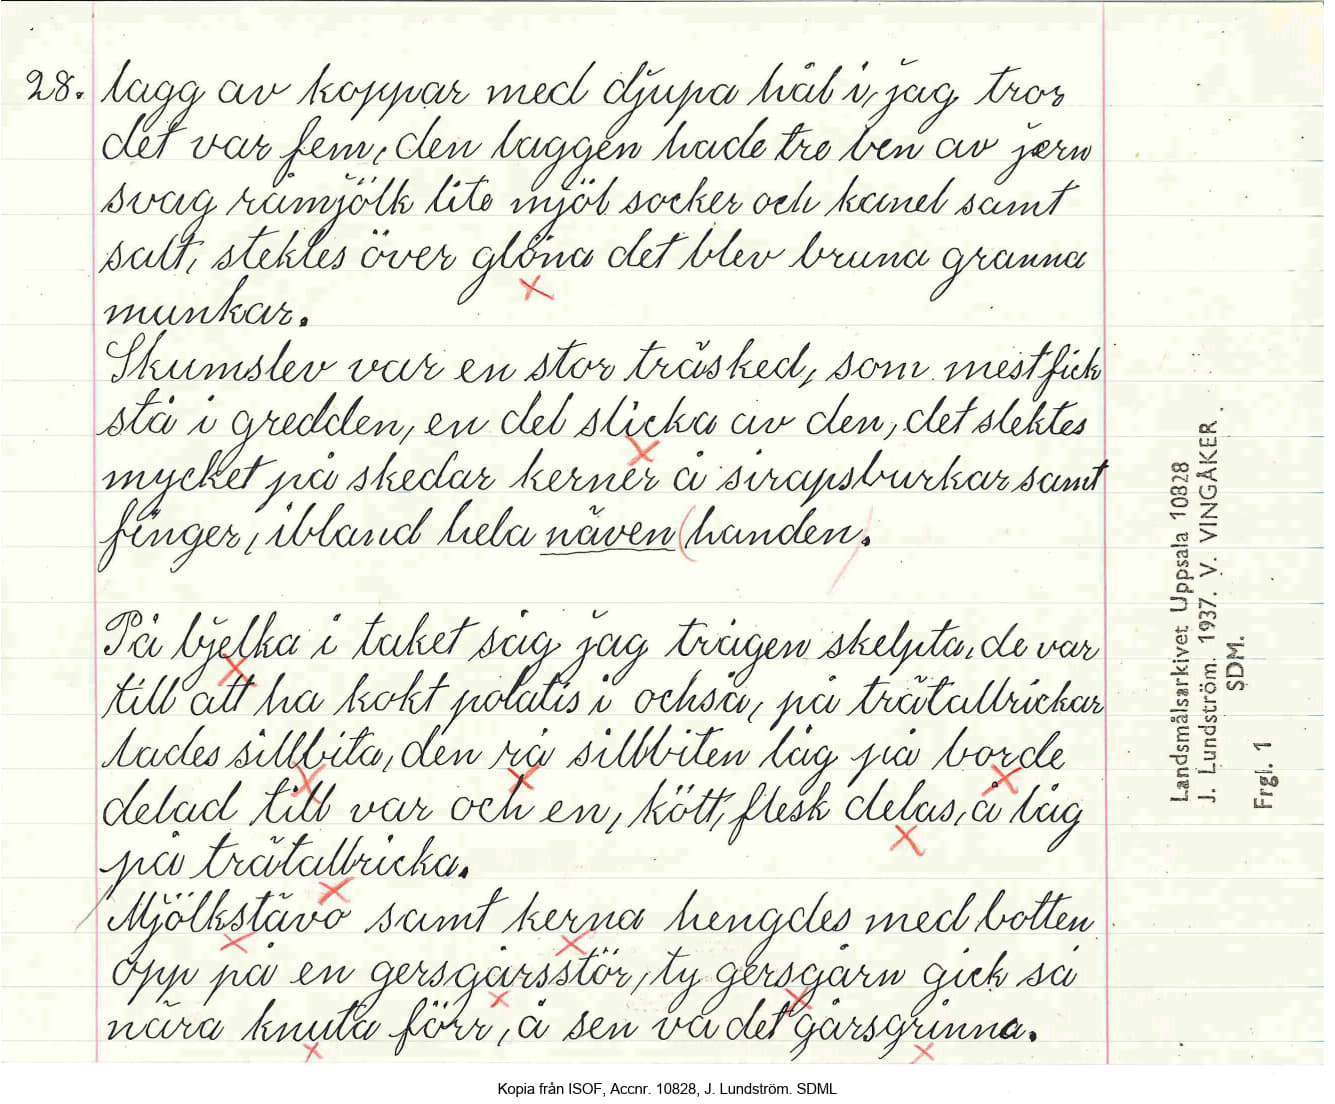 28. lagg av koppar med djupa hål i, jag tror
det var fem, den laggen hade tre ben av jern
svag råmjölk lite mjöl socker och kanel samt
salt, stektes över glöna det blev bruna granna
munkar.
Skumslev var en stor träsked, som mest fick
stå i gredden, en del slicka av den, det slektes
mycket på skedar kerner å sirapsburkar samt
finger, ibland hela näven (handen).
På bjelka i taket såg jag trågen skelpta, de var
till att ha kokt potatis i också, på trätallrickar
lades sillbita, den rå sillbiten låg på borde
delad till var och en, kött, flesk delas, å låg
på trätallricka.
Mjölkstävo samt kerna hengdes med botten
opp på en gersgårsstör, ty gersgårn gick så
nära knuta förr, å sen va det gårsgrinna.
Landsmålsarkivet Uppsala 10828
J. Lundström. 1937. V. VINGÅKER.
SDM.
Frgl. 1
Kopia från ISOF, Accnr. 10828, J. Lundström. SDML